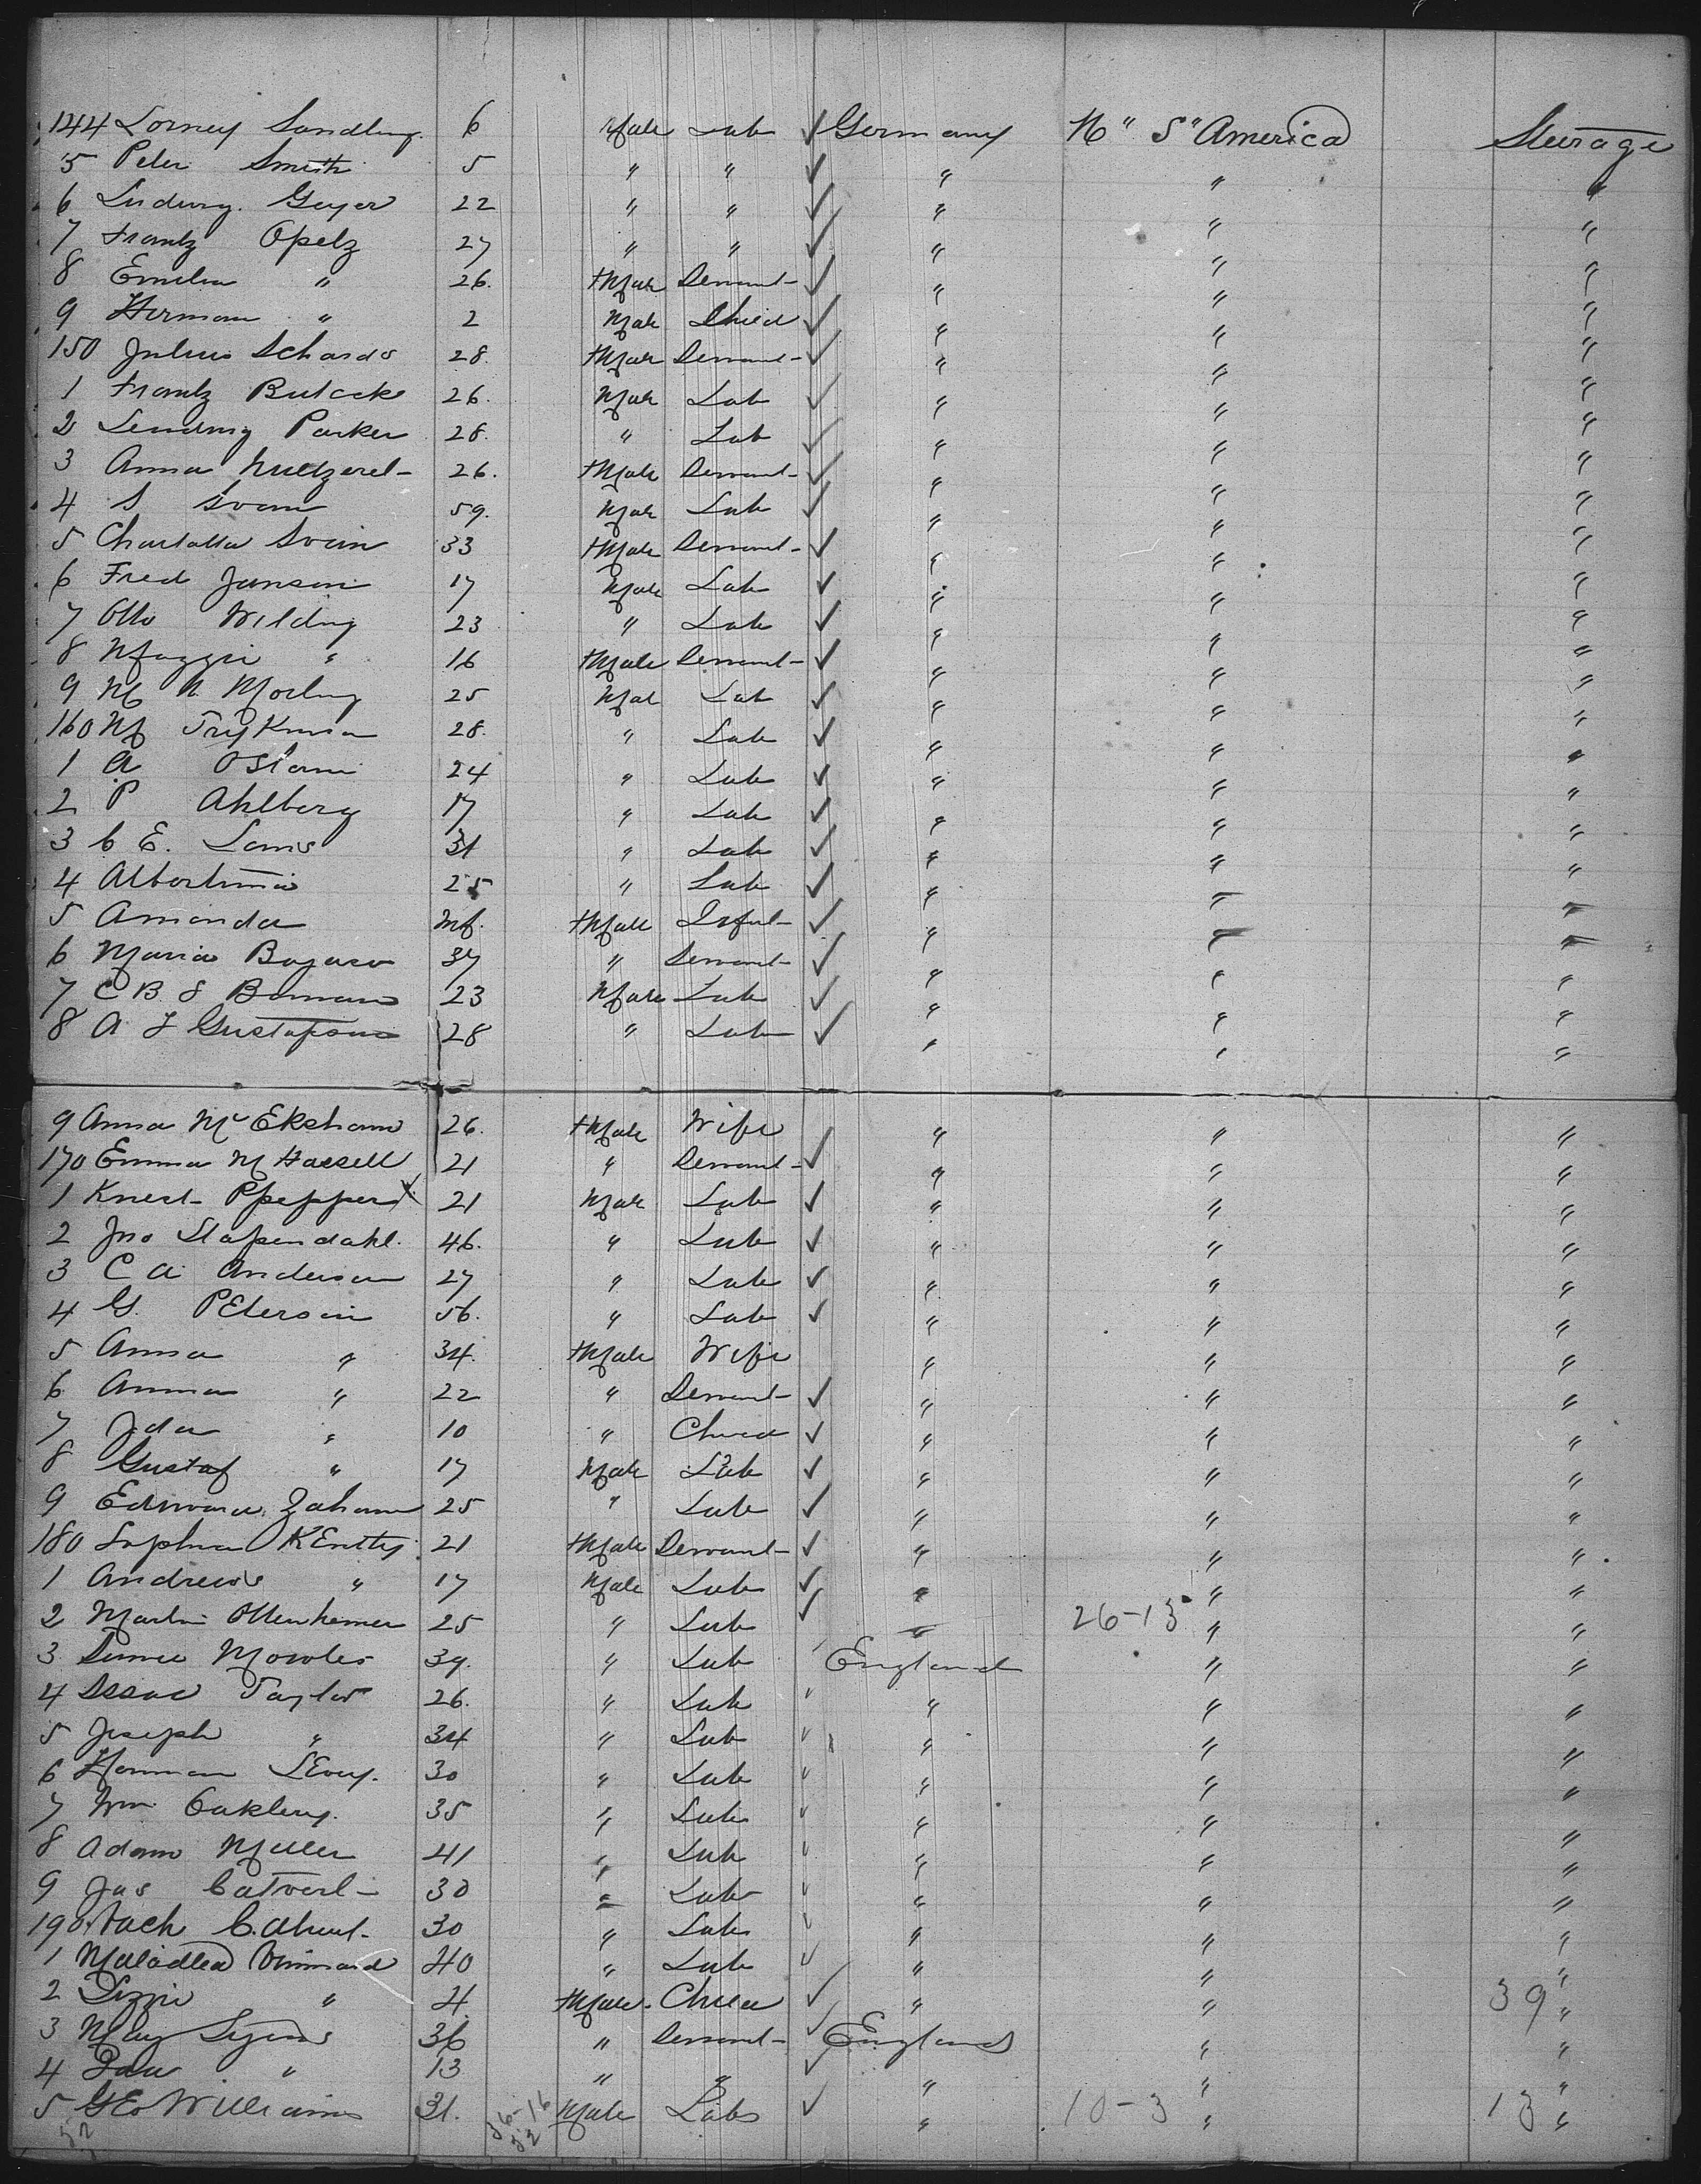 144 Lorney Sandburg. 6 Male Lab ✓ Germany N" S" America Steerage
5 Peter Smith 5 " " ✓ " " "
6 Ludwig. Geyer 22 " " ✓ " " "
7 Frantz Opelz 27 " " ✓ " " "
8 Emelia " 26. fMale Servant ✓ " " "
9 Herman " 2 Male Child ✓ " " "
150 Julius Schards 28. fMale Servant ✓ " " "
1 Frantz Butcek 26. Male Lab ✓ " " "
2 Parker 28. " Lab ✓ " " "
3 Anna 26. fMale Servant ✓ " " "
4 S Svem 59. Male Lab ✓ " " "
5 Charlotta Svein 33 fMale Servant ✓ " " "
6 Fred Janson 17 Male Lab ✓ " " "
7 Otto Wilding 23 " Lab ✓ " " "
8 Maggie " 16 fMale Servant ✓ " " "
9 M N Morling 25 Male Lab ✓ " " "
160 M 28. " Lab ✓ " " "
1 A Ostrom 24 " Lab ✓ " " "
2 P Ahlberg 17 " Lab ✓ " " "
3 C E. Lans 31 " Lab ✓ " " "
4 Albertina 25 " Lab ✓ " " "
5 Amanda Inf. fMale Infant ✓ " " "
6 Maria 37 " Servant ✓ " " "
7 C B S Boman 23 Male Lab ✓ " " "
8 A F Gustafson 28 " Lab ✓ " " "
9 Anna Mc Eksham 26. fMale Wife " " "
170 Emma M Hassell 21 " Servant ✓ " " "
1 Knest Ppepper X 21 Male Lab ✓ " " "
2 Jno Stapendahl. 46. " Lab ✓ " " "
3 C A Anderson 27 " Lab ✓ " " "
4 G. PEterson 56. " Lab ✓ " " "
5 Anna " 34. fMale Wife " " "
6 Anna " 22 " Servant ✓ " " "
7 Ida " 10 " Child ✓ " " "
8 Gustaf " 17 Male Lab ✓ " " "
9 Edward Zaham 25 " Lab ✓ " " "
180 Sophia KEntty 21 fMale Servant ✓ " " "
1 Andrews " 17 Male Lab ✓ " " "
2 Martin Ottenhemer 25 " Lab ✓ " 26-13 " "
3 Mowles 39. " Lab England " "
4 Issac Taylor 26. " Lab " " "
5 Joseph " 34 " Lab " " "
6 Herman LEvy. 30 " Lab " " "
7 Wm. Oakley. 35 " Lab " " "
8 Adam Miller 41 " Lab " " "
9 Jas Calvert 30 " Lab " " "
190 Zach Calvert 30 " Lab " " "
1 40 " Lab " " "
2 Lizzie " 4 fMale Child ✓ " " 39 "
3 May Lyens 36 " Servant ✓ England " "
4 Ida " 13 " " ✓ " " "
5 GEo Williams 31. 16 Male Lab ✓ " 10-3 " 13 "
52